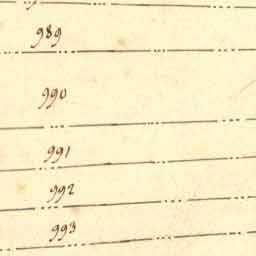 989
990
991
992
993